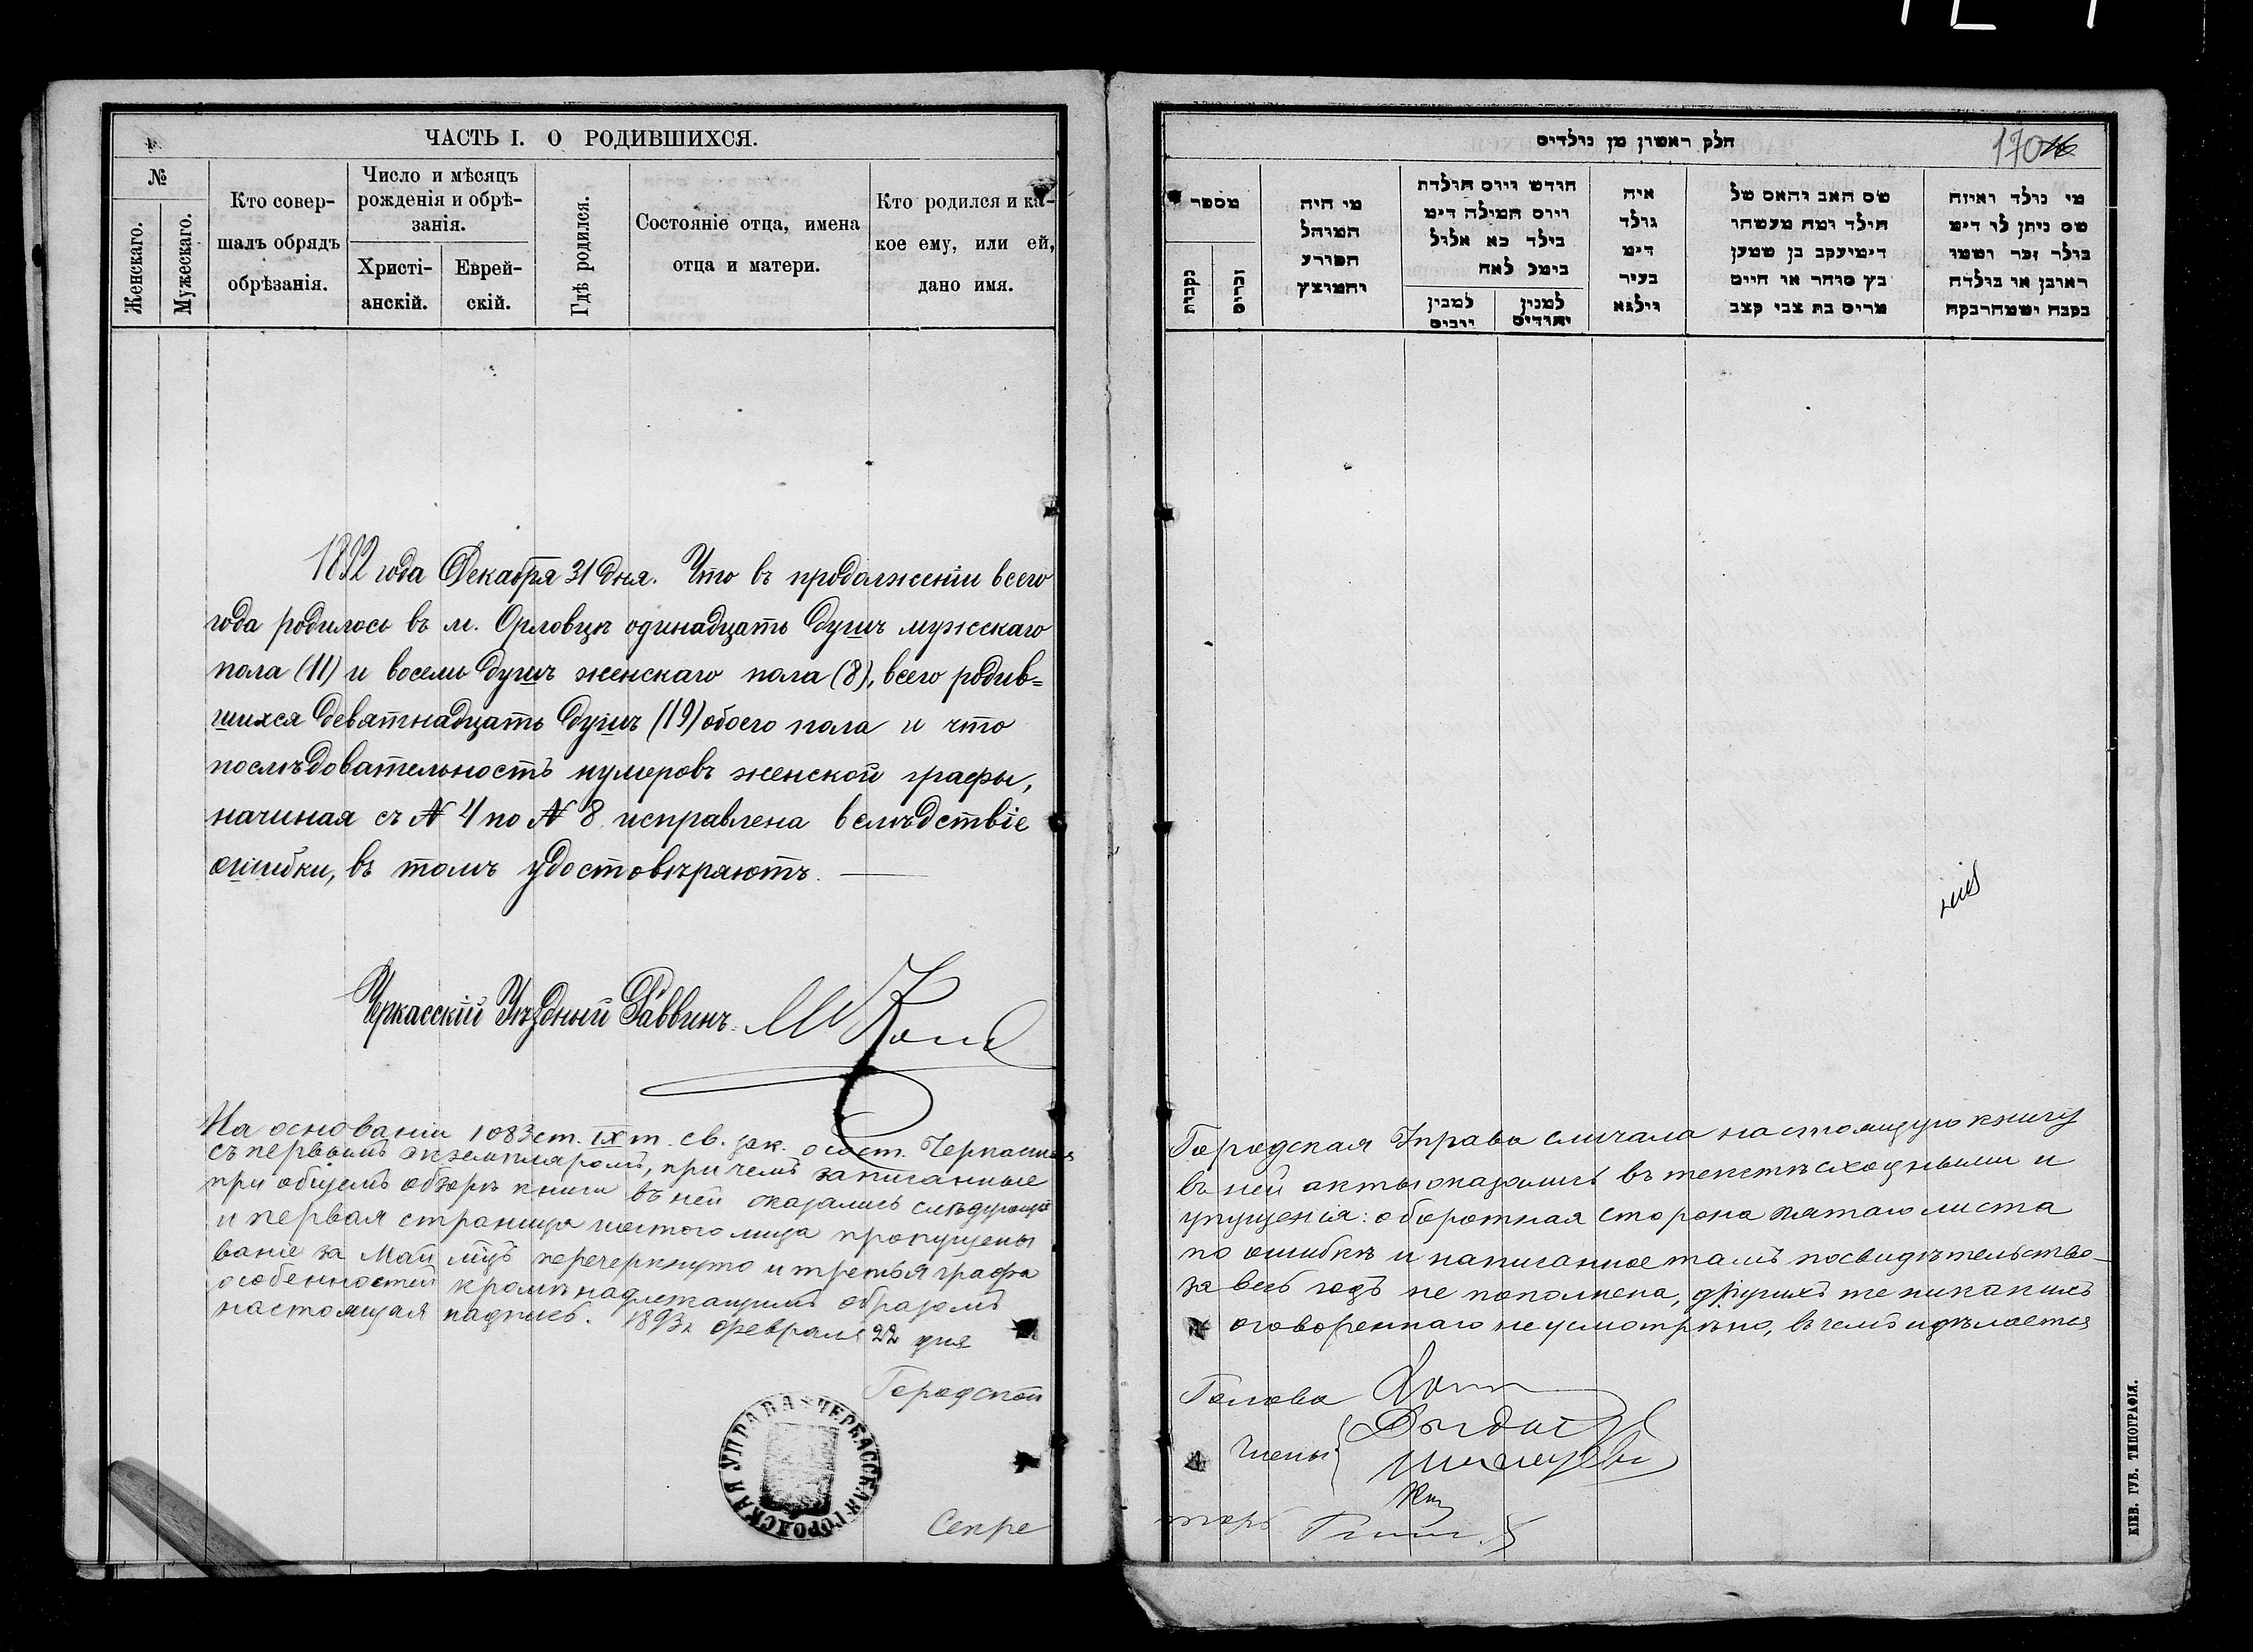 ЧАСТЬ I. О РОДИВШИХСЯ.
№
Женскаго.
Мужескаго.
Кто совер-
шалъ обрядъ
обрѣзанія.
Число и мѣсяцъ
рожденія и обрѣ-
занія.
Христі-
анскій.
Еврей-
скій.
Гдѣ родился.
Состояніе отца, имена
отца и матери.
Кто родился и ка-
кое ему, или ей,
дано имя.
1892 года Декабря 31 дня. Что въ продолженіи всего
года родилось въ м. Орловцѣ одинадцать душъ мужскаго
пола (11) и восемь душъ женскаго пола (8), всего родив=
шихся девятнадцать душъ (19) обоего пола и что
послѣдовательность нумеровъ женской графы,
начиная съ № 4 по № 8 исправлена вслѣдствіе
ошибки, въ томъ удостовѣряютъ.
Черкасскій Уѣздный Раввинъ
На основаніи 1083 ст. IX т. св. зак. о сост. Черкасская
съ первымъ экземпляромъ, при чемъ записанные
при общемъ обзорѣ книги въ ней оказались слѣдующія
и первая страница шестого листа пропущены
ваніе за Май м-цъ перечеркнуто и третья графа
особенностей кромѣ надлежащимъ образомъ
настоящая надпись. 1893 г. февраля 22 дня
Городской
ЧЕРКАССКАЯ ГОРОДСКАЯ УПРАВА
Секре
חלק ראשון מן נולדים
170
מספר
נקבות
זכרים
מי היה
המוהל
הפורע
והמוצץ
חודש ויום תולדת
ויום המילה דימ
בילד כא אלול
בימל לאה
למנין
יוונים
למנין
יהודים
איה
נולד
דימ
בעיר
ווילנא
שם האב והאם של
הילד ומה מעשהו
דימיעקב בן שמען
כץ סוחר או חיים
מרים בת צבי קצב
מי נולד ואיזה
שם ניתן לו דימ
נולד זכר ושמו
ראובן או נולדה
נקבה ושמהרבקה
Городская Управа сличала настоящую книгу
въ ней акты оказались въ текстѣ сходными и
упущенія: оборотная сторона пятаго листа
по ошибкѣ и написанное тамъ посвидѣтельство-
за весь годъ не пополнена, другихъ же никакихъ
оговореннаго не усмотрѣно, въ чемъ и дѣлается
Голова
Члены
тарь
КІЕВ. ГУБ. ТИПОГРАФІЯ.